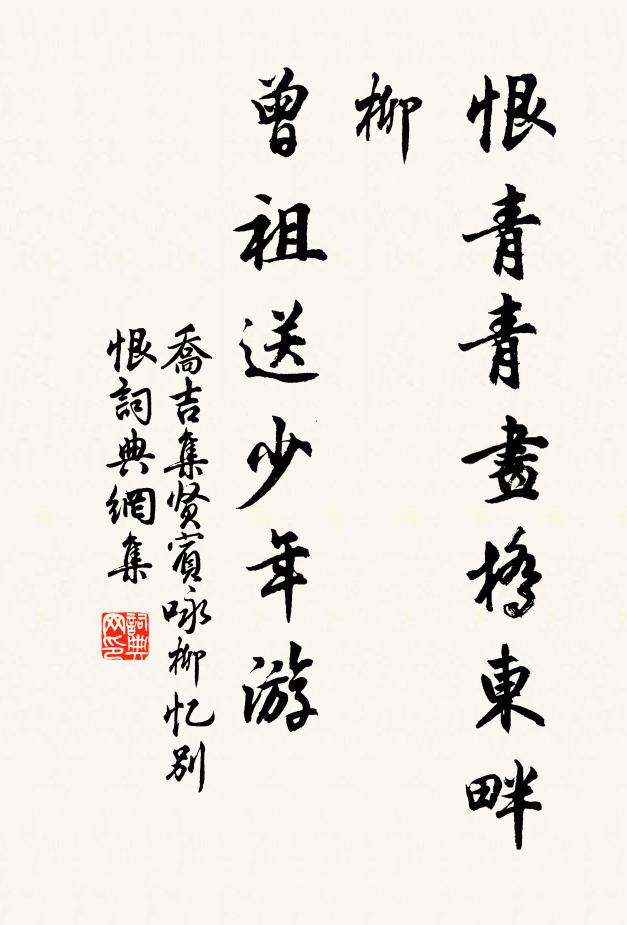 恨青青畫橋東畔
柳
曾祖送少年游
喬吉集贤賓咏柳忆别
恨詞典網集
詞典网印